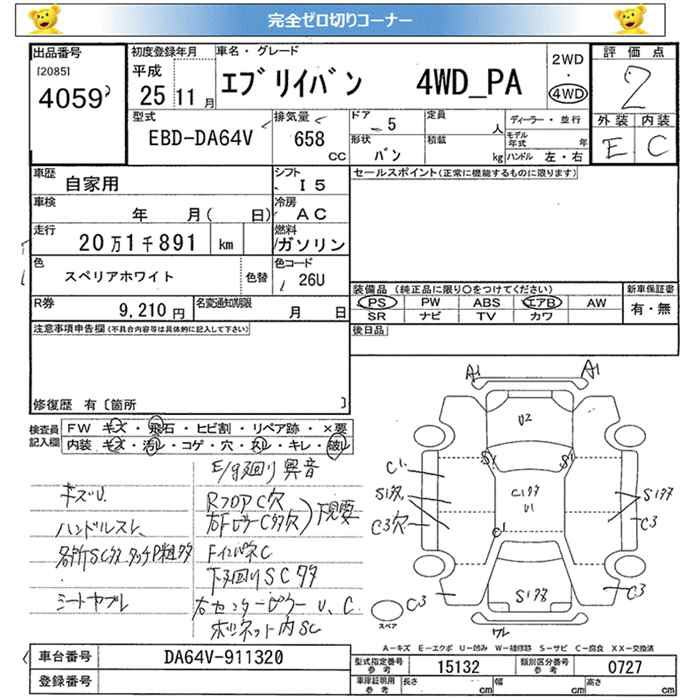 完全ゼロ切りコーナー
出品番号
[2085]
4059
初度登録年月
平成
25 11月
車名・グレード
エブリイバン 4WD_PA
2WD
・
4WD
評価点
2
外装 内装
E C
型式
EBD-DA64V
排気量
658
CC
ドア
5
定員
人
ディーラー・並行
モデル年式
年
形状
バン
積載
kg
ハンドル 左・右
車歴
自家用
シフト
I5
セールスポイント(正常に機能するものに限ります)
車検
年 月( 日)
冷房
AC
走行
20万1千891 km
燃料
ガソリン
色
スペリアホワイト
色替
色コード
26U
装備品 (純正品に限り○をつけてください)
新車保証書
PS PW ABS エアB AW
有・無
SR ナビ TV カワ
R券
9,210円
名変通知期限
月 日
後日品
注意事項申告欄(不具合内容等は具体的に記入して下さい)
修復歴 有〔箇所 〕
検査員記入欄
FW キズ・飛石・ヒビ割・リペア跡・×要
内装 キズ・汚レ・コゲ・穴・スレ・キレ・破レ
E/g廻り異音
キズU.
RフロアC穴
ハンドルスレ、
右FピラーC多穴
下見要
各所SC多、タッチP粗多
FインパネC
下廻りSC多
シートヤブレ
右センターピラーU、C
ボンネット内SC
A1
A1
U2
S1
S1
C1
S1穴
C3穴
C1多
U1
C1
S1多
C3
C3
C3
S1多
スペア
A－キズ E－エクボ U－凹み W－補修跡 S－サビ C－腐食 XX－交換済
車台番号
DA64V-911320
登録番号
型式指定番号
参考
15132
類別区分番号
参考
0727
車庫証明用
参考
長さ
cm
幅
cm
高さ
cm